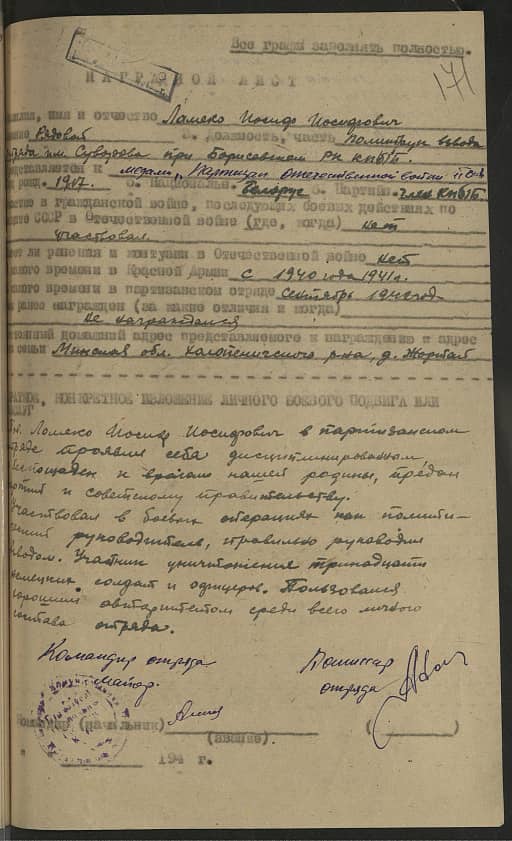 Все графы заполнять полностью.
171
НАГРАДНОЙ ЛИСТ
амилия, имя и отчество Ламеко Иосиф Иосифович
Рядовой должность, часть политрук взвода
отряда им. Суворова при Борисовском РК КП/б/Б.
редставляется к медали "Партизан Отечественной войны II ст."
од рожд. 1917. 5. Националь. Белорус 6. Партийн. член КП/б/Б.
астие в гражданской войне, последующих боевых действиях по
ащите СССР в Отечественной войне (где, когда) не
участвовал.
еет ли ранения и контузии в Отечественной войне нет
акого времени в Красной Армии с 1940 года 1941 г.
акого времени в партизанском отряде сентябрь 1942 год
ем ранее награжден (за какие отличия и когда)
не награждался
остоянный домашний адрес представляемого к награждению и адрес
о семьи Минская обл. Холопеничского р-на, д.
РАТКОЕ, КОНКРЕТНОЕ ИЗЛОЖЕНИЕ ЛИЧНОГО БОЕВОГО ПОДВИГА ИЛИ
СЛУГ
Ламеко Иосиф Иосифович в партизанском
отряде проявил себя дисциплинированным,
беспощаден к врагам нашей родины, предан
партии и советскому правительству.
Участвовал в боевых операциях как полити-
ческий руководитель, правильно руководил
взводом. Участник уничтожения тринадцати
немецких солдат и офицеров. Пользовался
хорошим авторитетом среди всего личного
состава отряда.
Командир отряда Комиссар
майор. отряда
Командир (начальник) ( )
(звание)
" 194 г.